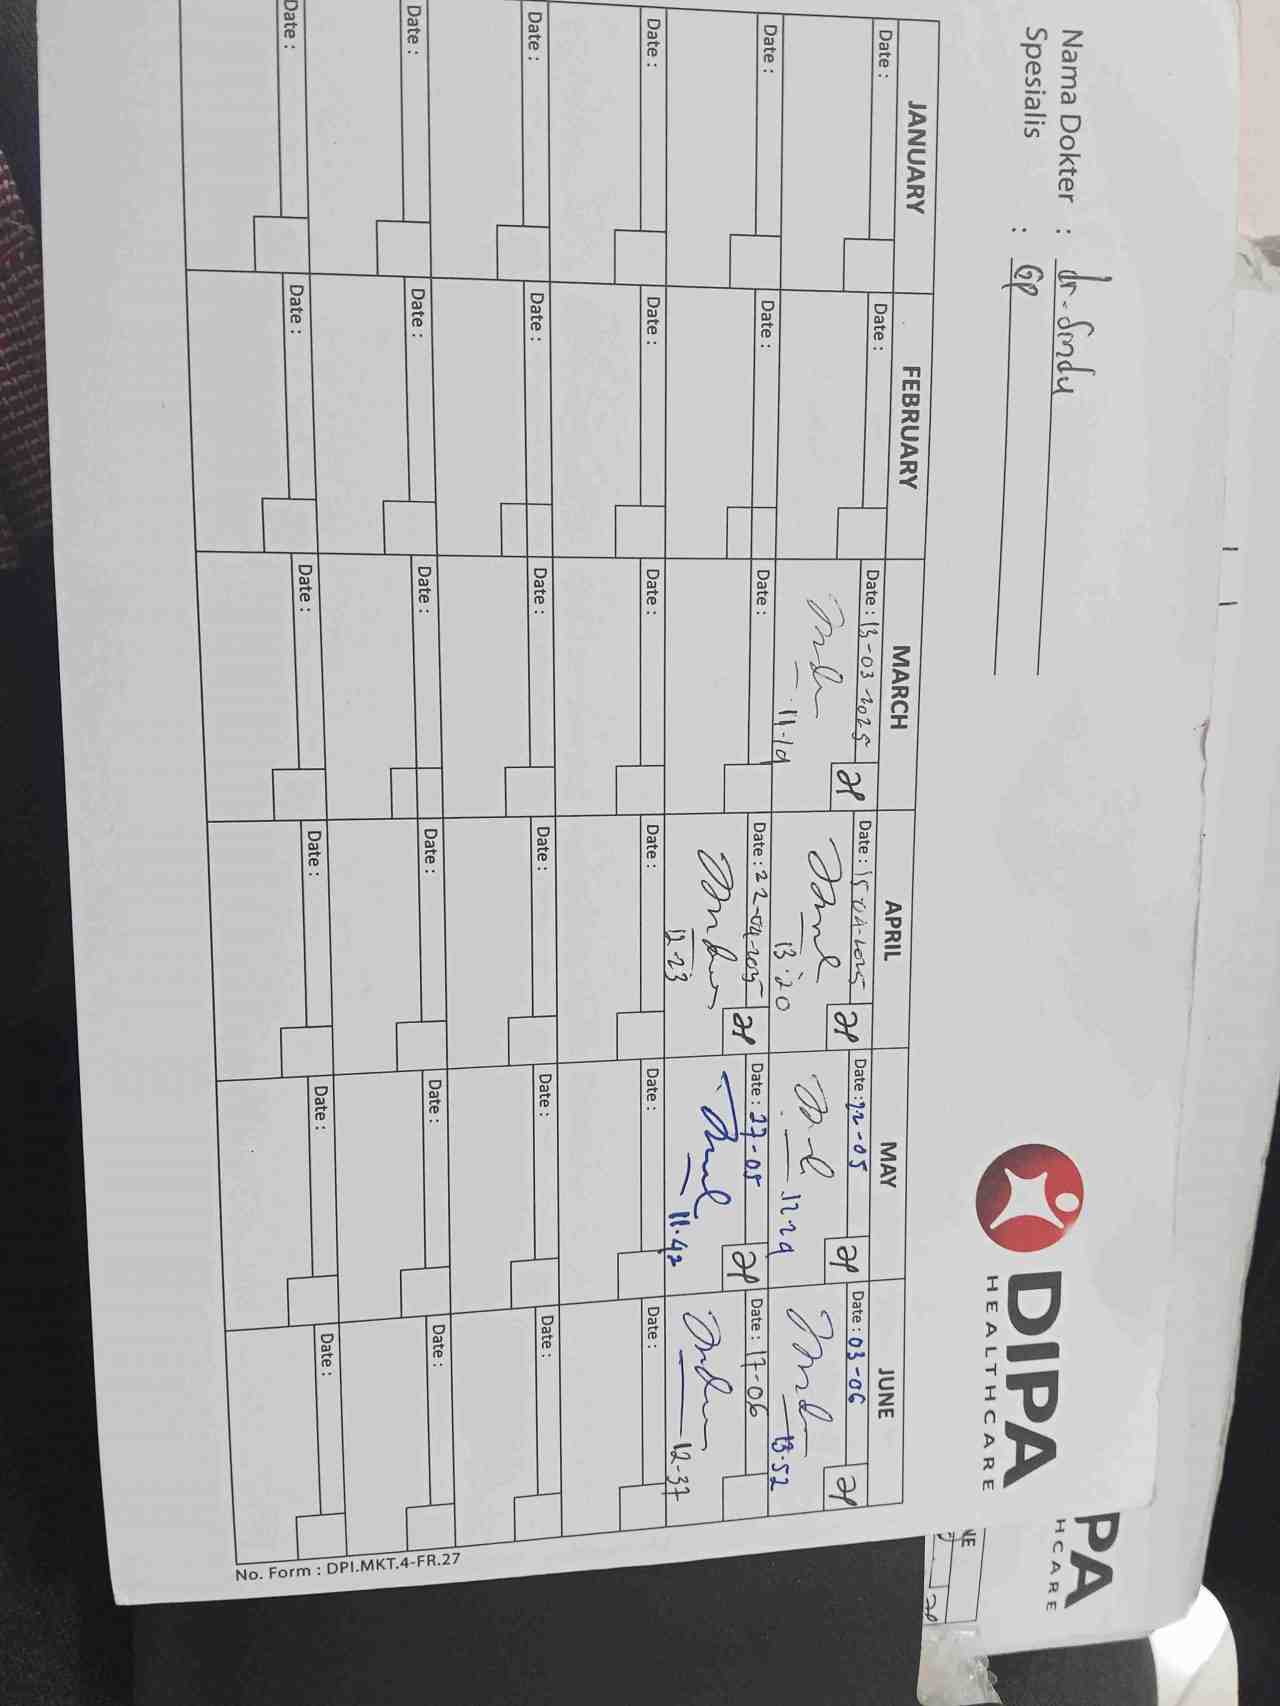 Nama Dokter : dr. Sindu
Spesialis : GP
DIPA
HEALTHCARE
PA
HCARE
JANUARY FEBRUARY MARCH APRIL MAY JUNE
NE
Date : Date : Date : 13-03-2025 Date : 15-04-2025 Date : 22-05 Date : 03-06
11-19 13:20 12-29 13-52
Date : Date : Date : Date : 22-04-2025 Date : 27-05 Date : 17-06
12-23 11.42 12-37
Date : Date : Date : Date : Date : Date :
Date : Date : Date : Date : Date : Date :
Date : Date : Date : Date : Date : Date :
Date : Date : Date : Date : Date : Date :
No. Form : DPI.MKT.4-FR.27